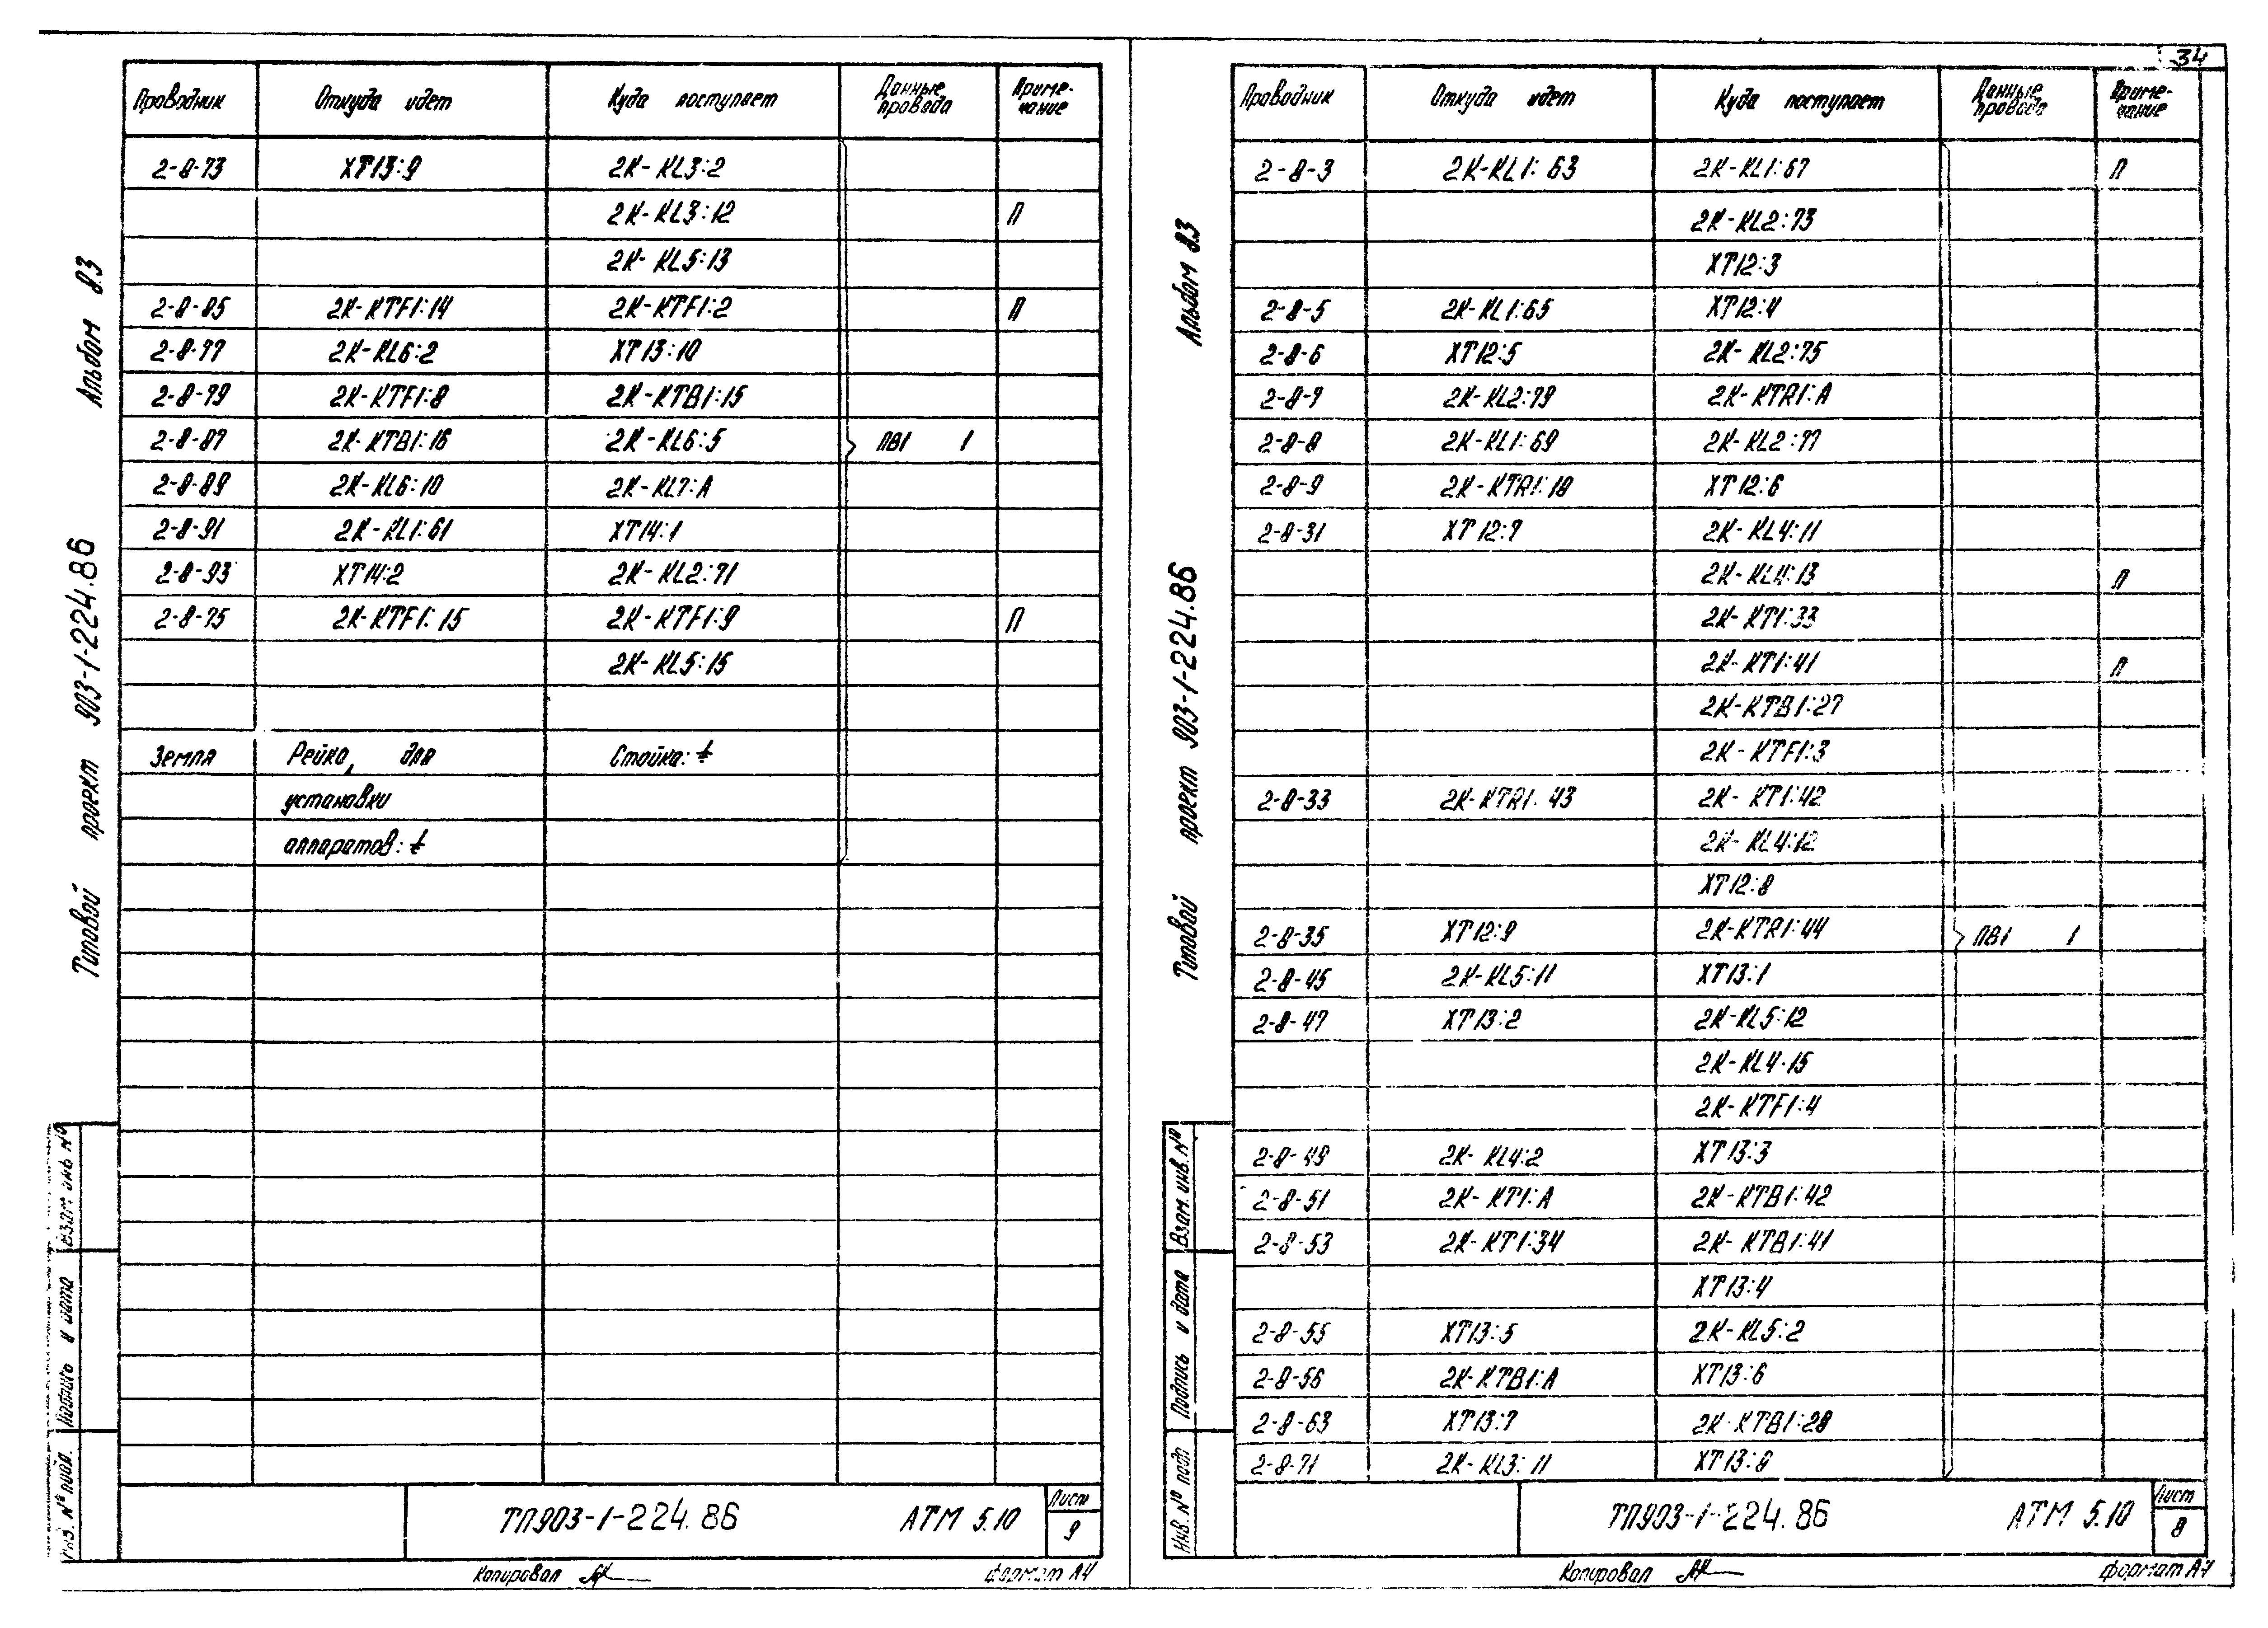 34
Альбом 8.3
Типовой проект 903-1-224.86
Проводник Откуда идет Куда поступает Данные провода Приме-чание
2-8-73 XT13:9 2К-KL3:2
2К-KL3:12 П
2К-KL5:13
2-8-85 2К-KTF1:14 2К-KTF1:2 П
2-8-77 2К-KL6:2 XT13:10
2-8-79 2К-KTF1:8 2К-KTB1:15
2-8-87 2К-KTB1:16 2К-KL6:5 ПВ1 1
2-8-89 2К-KL6:10 2К-KL7:A
2-8-91 2К-KL1:61 XT14:1
2-8-93 XT14:2 2К-KL2:71
2-8-75 2К-KTF1:15 2К-KTF1:9 П
2К-KL5:15
Земля Рейка, для Стойка: ⏚
установки
аппаратов: ⏚
Взам. инв. №
Подпись и дата
Инв. № подл.
ТП903-1-224.86 АТМ 5.10 Лист 9
Копировал
Формат А4
Альбом 8.3
Типовой проект 903-1-224.86
Проводник Откуда идет Куда поступает Данные провода Приме-чание
2-8-3 2К-KL1:63 2К-KL1:67 П
2К-KL2:73
XT12:3
2-8-5 2К-KL1:65 XT12:4
2-8-6 XT12:5 2К-KL2:75
2-8-7 2К-KL2:79 2К-KTR1:A
2-8-8 2К-KL1:69 2К-KL2:77
2-8-9 2К-KTR1:18 XT12:6
2-8-31 XT12:7 2К-KL4:11
2К-KL4:13 П
2К-KT1:33
2К-KT1:41 П
2К-KTB1:27
2К-KTF1:3
2-8-33 2К-KTR1:43 2К-KT1:42
2К-KL4:12
XT12:8
2-8-35 XT12:9 2К-KTR1:44 ПВ1 1
2-8-45 2К-KL5:11 XT13:1
2-8-47 XT13:2 2К-KL5:12
2К-KL4:15
2К-KTF1:4
2-8-49 2К-KL4:2 XT13:3
2-8-51 2К-KT1:A 2К-KTB1:42
2-8-53 2К-KT1:34 2К-KTB1:41
XT13:4
2-8-55 XT13:5 2К-KL5:2
2-8-56 2К-KTB1:A XT13:6
2-8-63 XT13:7 2К-KTB1:28
2-8-71 2К-KL3:11 XT13:8
Взам. инв. №
Подпись и дата
Инв. № подл
ТП903-1-224.86 АТМ 5.10 Лист 8
Копировал
Формат А4